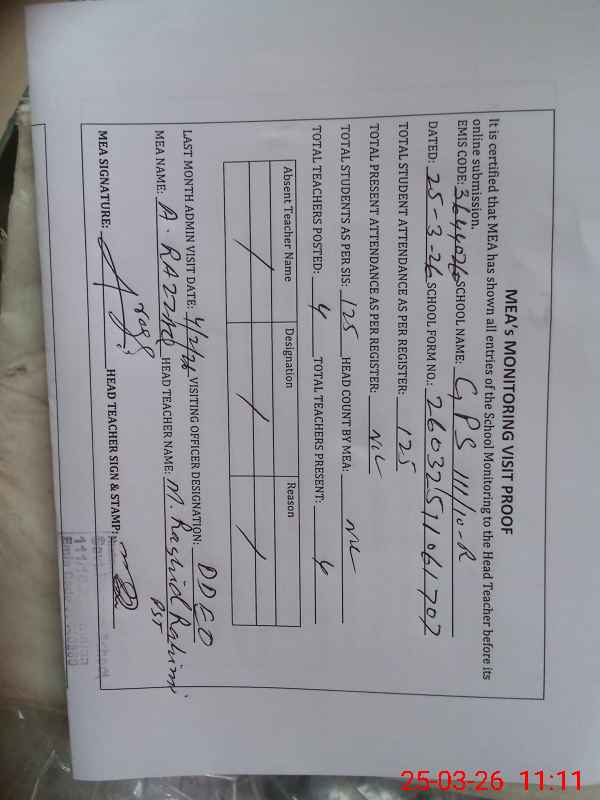 MEA's MONITORING VISIT PROOF
It is certified that MEA has shown all entries of the School Monitoring to the Head Teacher before its
online submission.
EMIS CODE: 3644026 SCHOOL NAME: GPS 111/10-R
DATED: 25-3-26 SCHOOL FORM NO.: 26032511061707
TOTAL STUDENT ATTENDANCE AS PER REGISTER: 125
TOTAL PRESENT ATTENDANCE AS PER REGISTER: NIL
TOTAL STUDENTS AS PER SIS: 125 HEAD COUNT BY MEA: NIL
TOTAL TEACHERS POSTED: 4 TOTAL TEACHERS PRESENT: 4
Absent Teacher Name Designation Reason
/ / /
LAST MONTH ADMIN VISIT DATE: 4/2/26 VISITING OFFICER DESIGNATION: DDEO
MEA NAME: A. RAZZAQ HEAD TEACHER NAME: M. Rashid Rahimi
PST
MEA SIGNATURE: HEAD TEACHER SIGN & STAMP:
25-03-26 11:11